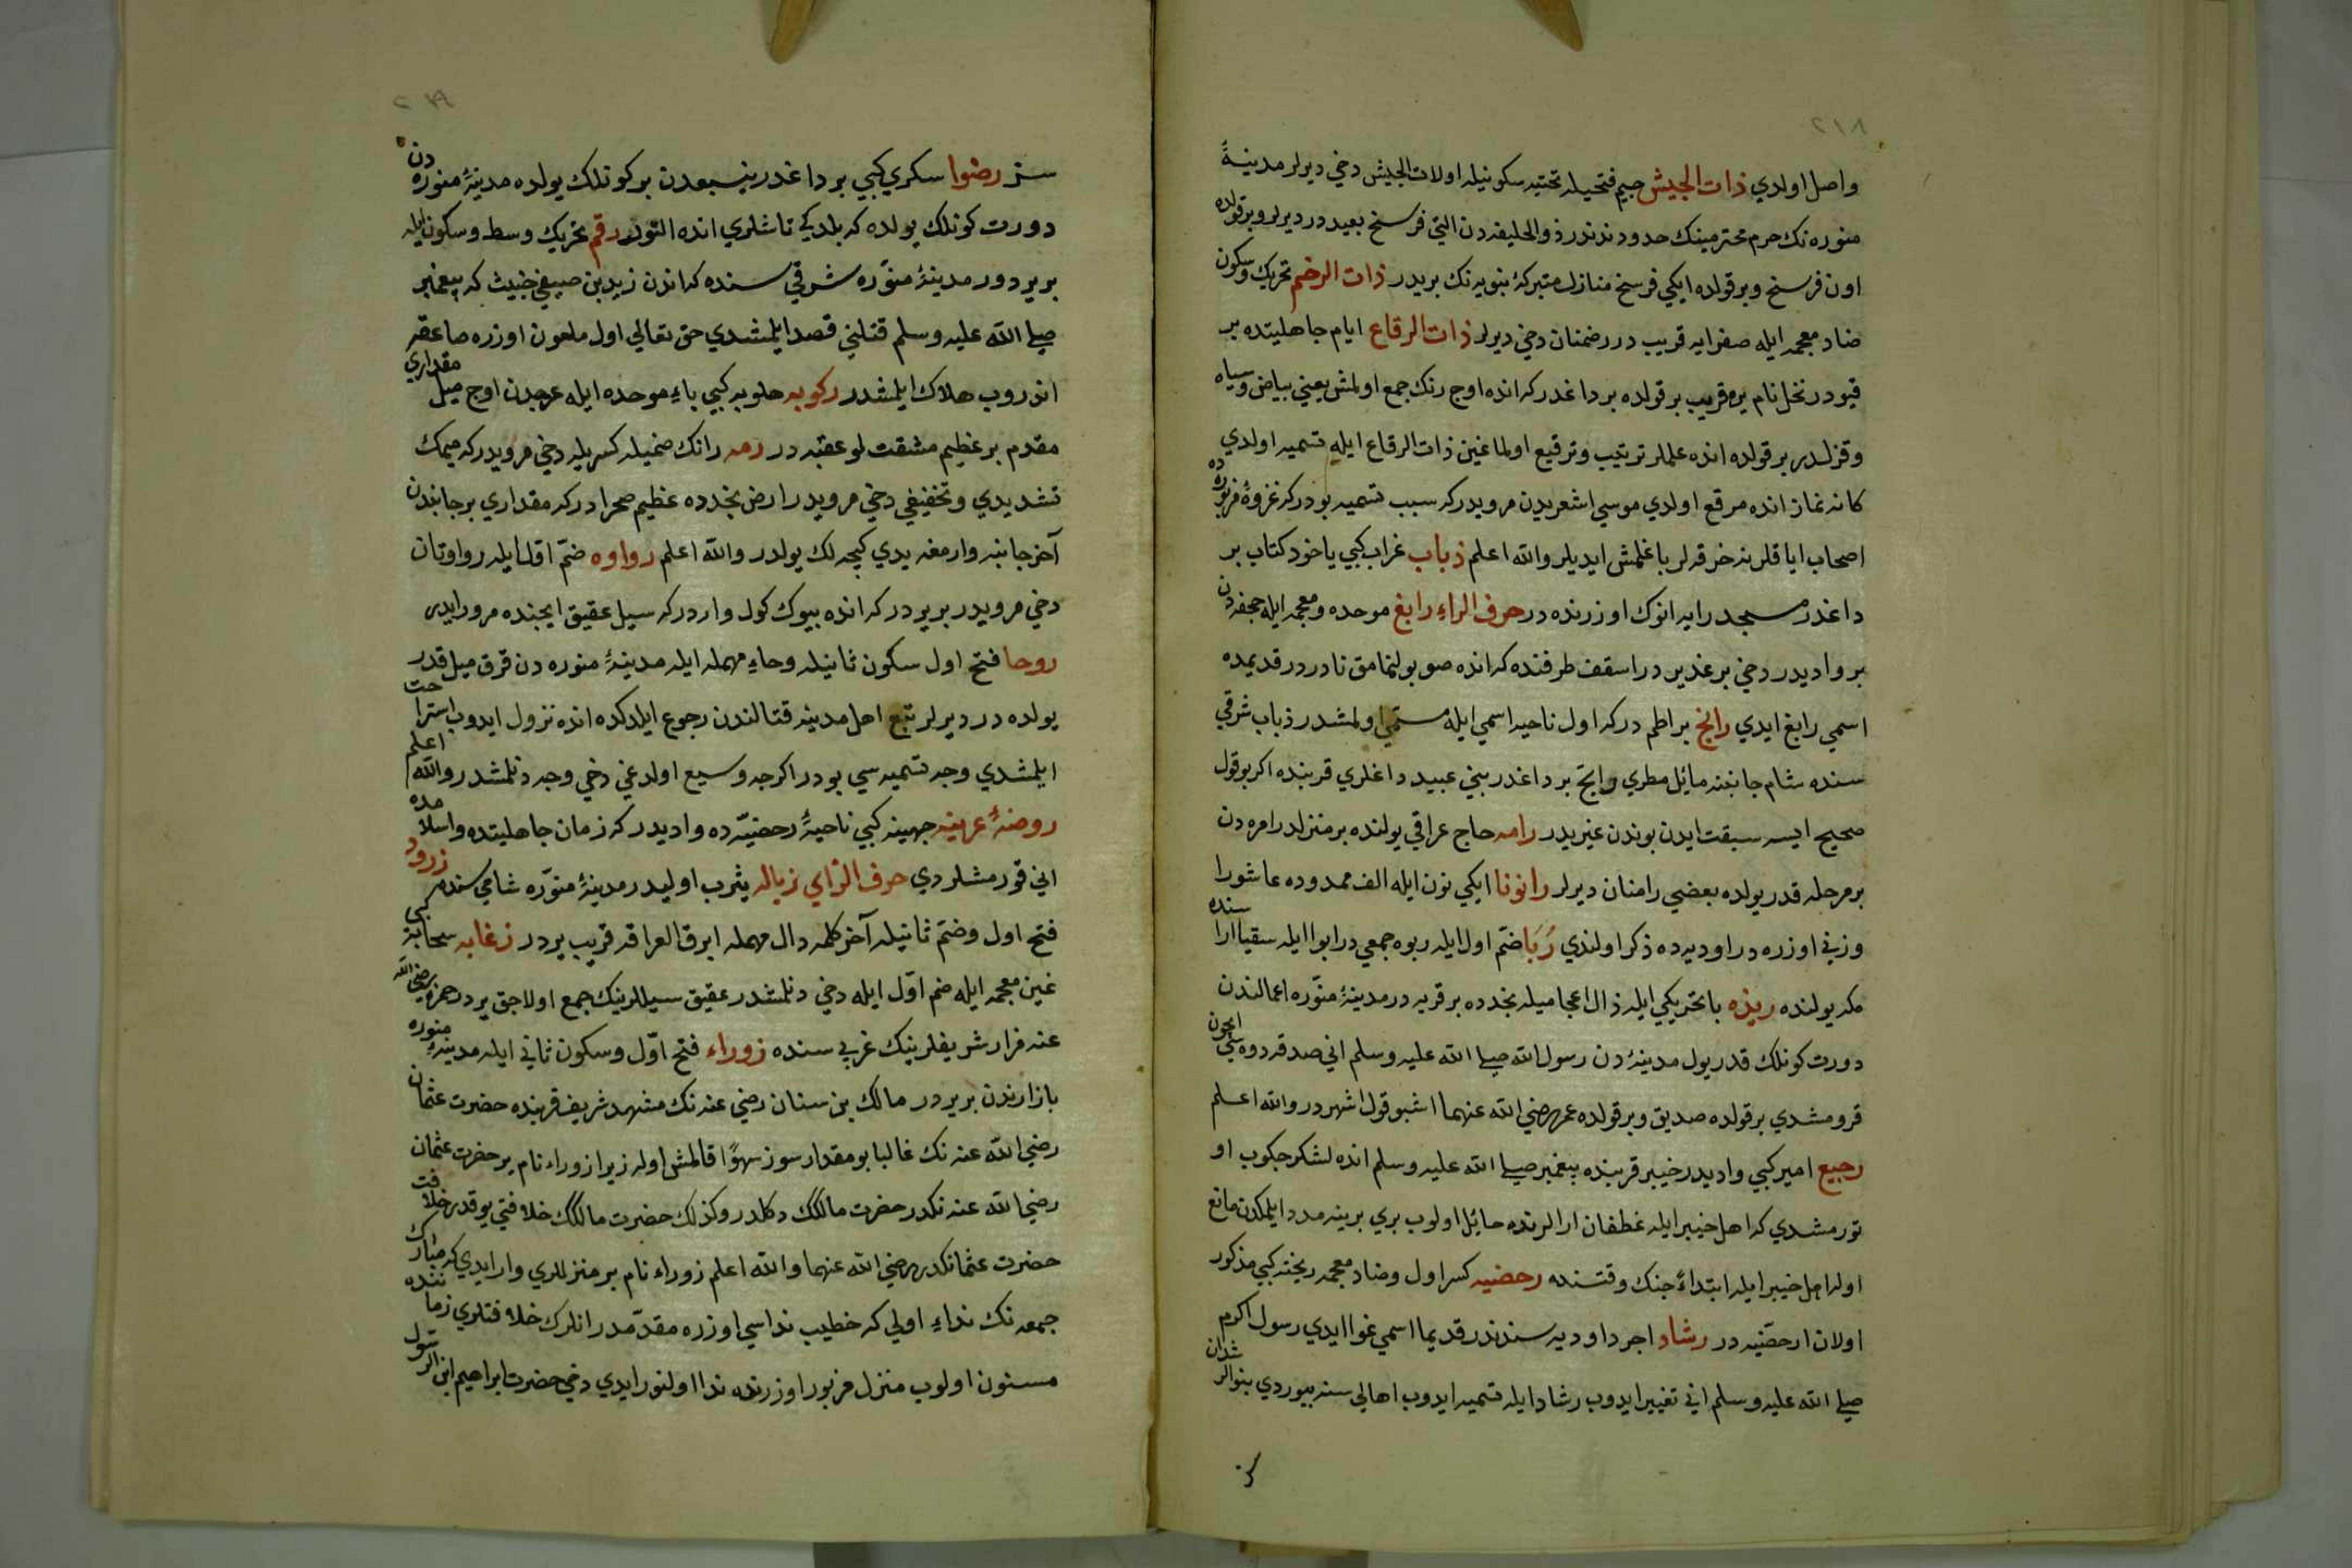 ٢١٨
واصل اولدي ذات الجيش جيم فتحيله تحتيه سكونيله اولات الجيش دخي ديرلر مدينهٔ
منوره نك حرم محترمينك حدودندندر ذوالحليفه دن التي فرسخ بعيددر ديرلر وبر قولده
اون فرسخ وبر قولده ايكي فرسخ منازل متبركهٔ نبويه نك بريدر ذات الرخم تحريك وسكون
ضاد معجمه ايله صفرايه قريب در رضمتان دخي ديرلر ذات الرقاع ايام جاهليتده بر
قيودر نخل نام يره قريب بر قولده بر داغدر كه انده اوج رنك جمع اولمش يعني بياض وسياه
وقزلدر بر قولده انده علملر ترتيب وترقيع اولماغين ذات الرقاع ايله تسميه اولدي
كانه نماز انده مرقع اولدي موسي اشعريدن مرويدر كه سبب تسميه بودر كه غزوهٔ مزبوره ده
اصحاب اياقلرنه خرقه لر باغلمش ايديلر والله اعلم ذباب غراب كبي ياخود كتاب بر
داغدر مسجد رايه انوك اوزرنده در حرف الراء رابغ موحده ومعجمه ايله جحفه دن
بر واديدر دخي بر غديردر اسقف طرفنده كه انده صو بولنمامق نادردر قديمده
اسمي رابغ ايدي رابخ بر اطم در كه اول ناحيه اسمي ايله مسمي اولمشدر ذباب شرقي
سنده شام جانبنه مائل مطري رابخ بر داغدر بني عبيد داغلري قربنده اكر بو قول
صحيح ايسه سبقت ايدن بوندن غيريدر رامه حاج عراقي يولنده بر منزلدر امره دن
بر مرحله قدر يولده بعضي رامتان ديرلر رانونا ايكي نون ايله الف ممدوده عاشورا
وزني اوزره در اوديه ده ذكر اولندي رُبَا ضم اول ايله ربوه جمعي در ابوا ايله سقيا اراسنده
مكه يولنده ربذه با تحريكي ايله ذال اعجاميله نجدده بر قريه در مدينهٔ منوّره اعمالندن
دورت كونلك قدر يول مدينهٔ دن رسول الله صلي الله عليه وسلم اني صدقه دوه سي ايچون
قرومشدي بر قولده صديق وبر قولده عمر رضي الله عنهما اشبو قول اشهردر والله اعلم
رجيع امير كبي واديدر خيبر قربنده پيغمبر صلي الله عليه وسلم انده لشكر جكوب او
تورمشدي كه اهل خيبر ايله غطفان ارالرنده حائل اولوب بري برينه مدد ايلمكدن مانع
اوله اهل خيبر ايله ابتداءً جنك وقتنده رحضيه كسر اول وضاد معجمه ريخته كبي مذكور
اولان ارحضّيه در رشاد اجرد اوديه سندندر قديما اسمي غوا ايدي رسول اكرم
صلي الله عليه وسلم اني تغيير ايدوب رشاد ايله تسميه ايدوب اهالي سنه بيوردي بنو الرشدان
سز
٢١٩
سز رضوا سكري كبي بر داغدر ينبعدن بر كونلك يولده مدينهٔ منوره دن
دورت كونلك يولده كه بلدكي تاشلري انده اللنور رقم تحريك وسط وسكون ايله
بر يردور مدينهٔ منوّره شرقي سنده كه اندن زيد بن صيفي خبيث كه پيغمبر
صلي الله عليه وسلم قتلني قصد ايلمشدي حق تعالي اول ملعون اوزره صاعقه
اندروب هلاك ايلمشدر ركوبه حلوبه كبي باء موحده ايله عرجدن اوج ميل مقداري
مقدم بر عظيم مشقتلو عقبه در رمه رانك ضميله كسريله دخي مرويدر كه ميمك
تشديدي وتخفيفي دخي مرويدر ارض نجدده عظيم صحرادر كه مقداري بر جانبندن
آخر جانبنه وارمغه يدي كيجه لك يولدر والله اعلم رواوه ضمّ اقل ايله رواوتان
دخي مرويدر بر يردر كه انده بيوك كول واردر كه سيل عقيق ايچنده مرور ايدر
روحا فتح اول سكون ثانيله وحاء مهمله ايله مدينهٔ منوره دن قرق ميل قدر
يولده در ديرلر تبع اهل مدينه قتالندن رجوع ايلدكده انده نزول ايدوب استراحت
ايلمشدي وجه تسميه سي بودر اكرجه وسيع اولدغي دخي وجه دنلمشدر والله اعلم
روضهٔ عرينه جهينه كبي ناحيهٔ رحضيّه ده واديدر كه زمان جاهليتده واسلامده
اني قورمشلردي حرف الزاي زباله يثرب اوليدر مدينهٔ منوّره شامي سنده زرود
فتح اول وضم ثانيله آخر كلمه دال مهمله ابرق العزافه قريب يردر زغابه سحابه كبي
غين معجمه ايله ضم اوّل ايله دخي دنلمشدر عقيق سيللرينك جمع اولاجق يردر حمزه رضي الله
عنه مزار شريفلرينك غربي سنده زوراء فتح اوّل وسكون ثاني ايله مدينهٔ منوره
بازارندن بر يردر مالك بن سنان رضي عنه نك مشهد شريف قربنده حضرت عثمان
رضي الله عنه نك غالبا بو مقدار سوز سهوًا قالمش اوله زيرا زوراء نام ير حضرت عثمان
رضي الله عنه نكدر حضرت مالكك دكلدر وكذلك حضرت مالكك خلافتي يوقدر خلافت
حضرت عثمانكدر رضي الله عنهما والله اعلم زوراء نام بر منزللري وار ايدي كه مبارك
جمعه نك نداء اولي كه خطيب نداسي اوزره مقدّمدر انلرك خلافتلري زماننده
مسنون اولوب منزل مزبور اوزرنده ندا اولنور ايدي دخي حضرت ابراهيم ابن الرسول